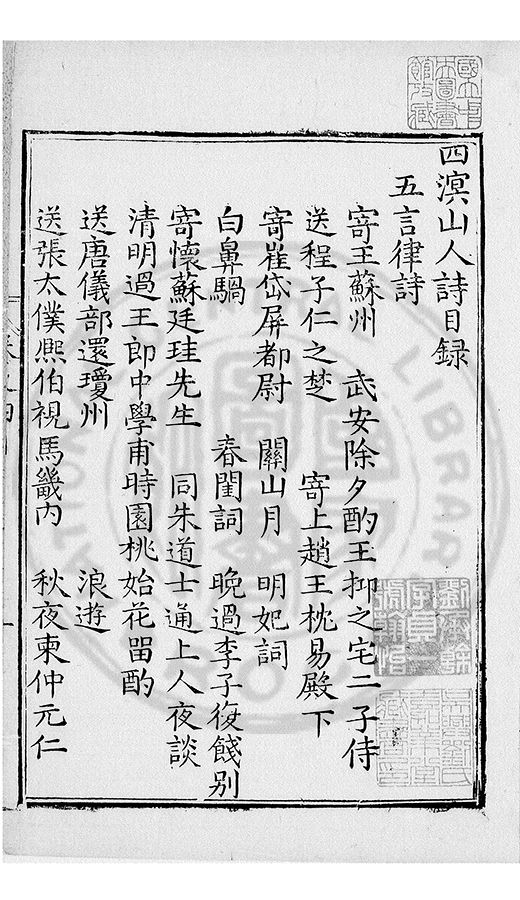 四溟山人詩目録
五言律詩
寄王蘇州　武安除夕酌王抑之宅二子侍
送程子仁之楚　寄上趙王枕易殿下
寄崔岱屏都尉　關山月　明妃詞
白鼻騧　春閨詞　晚過李子復餞別
寄懷蘇廷珪先生　同朱道士通上人夜談
清明過王郎中學甫時園桃始花留酌
送唐儀部還瓊州　浪遊
送張太僕熙伯視馬畿內　秋夜柬仲元仁